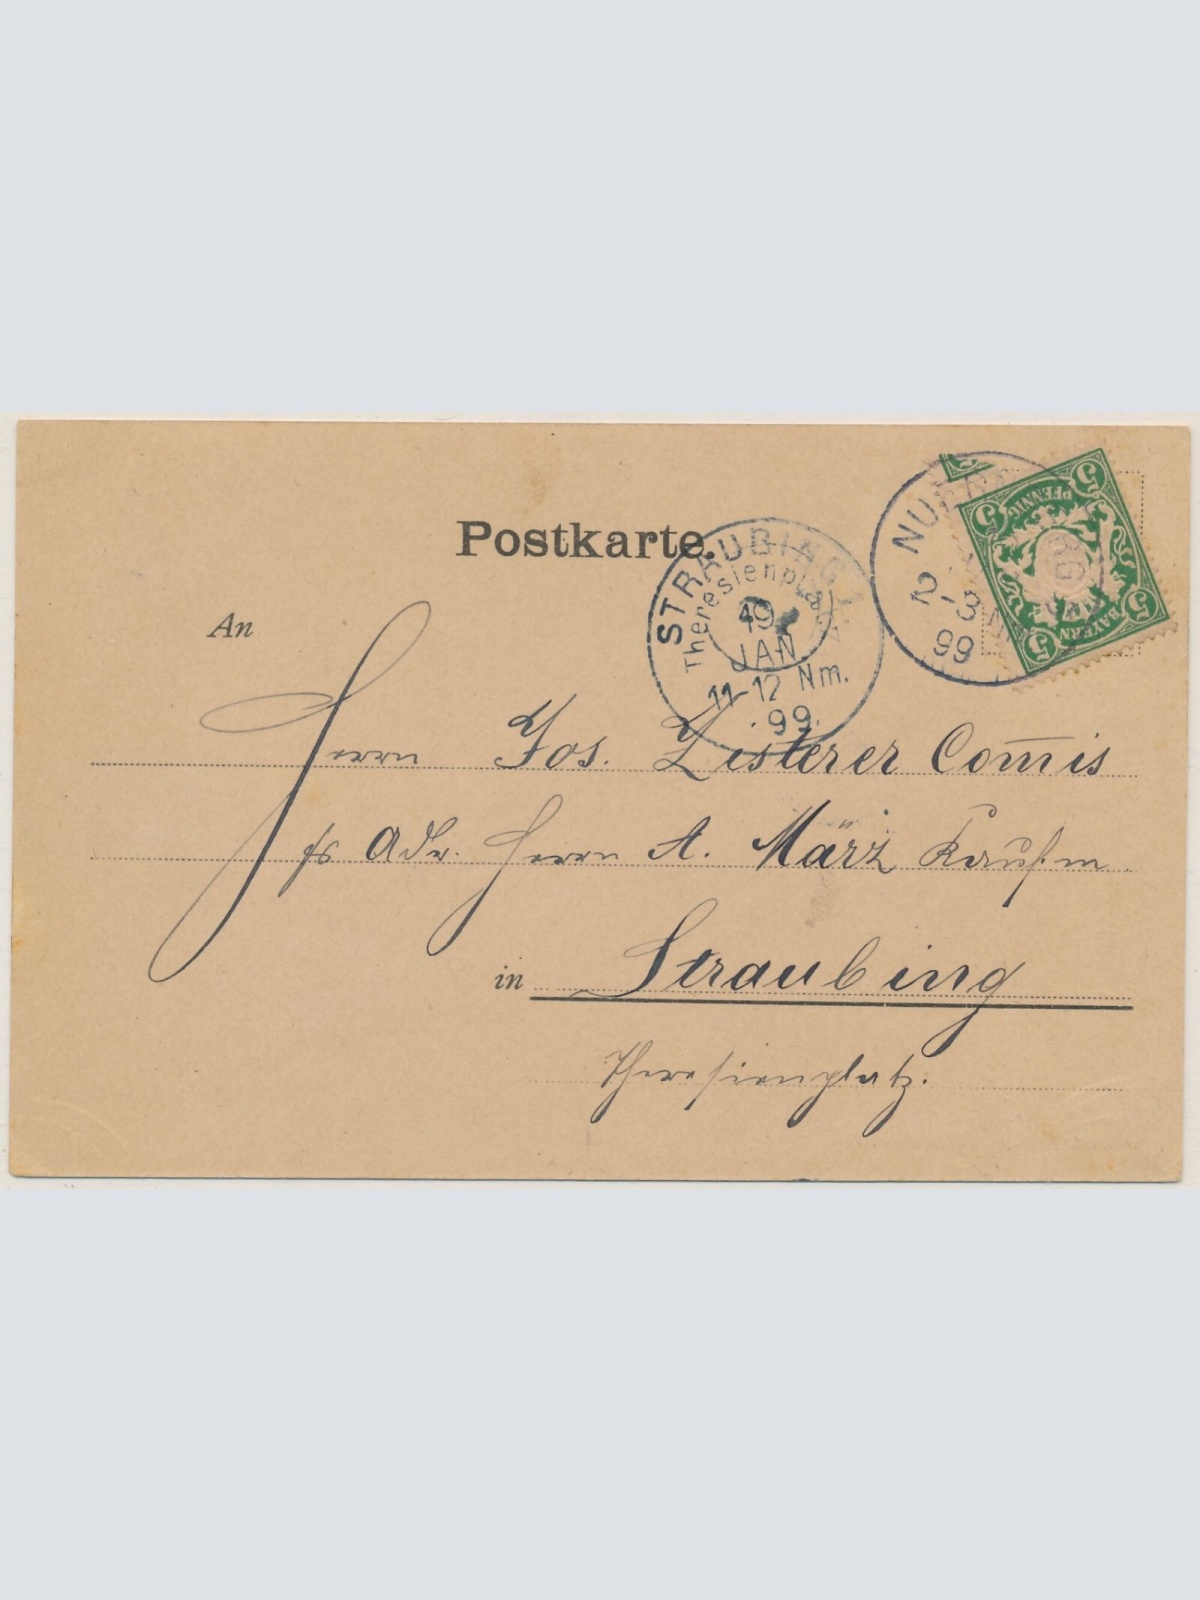 Postkarte.
An
STRAUBING 1.
Theresienplatz
19
JAN
11-12 Nm.
.99.
NU
2-3 N
99
5 PFENNIG 5
5 BAYERN 5
Herrn Jos. Zisterer Com̄is
Adr. Herrn A. März Kaufm
in Straubing
Theresienplatz.